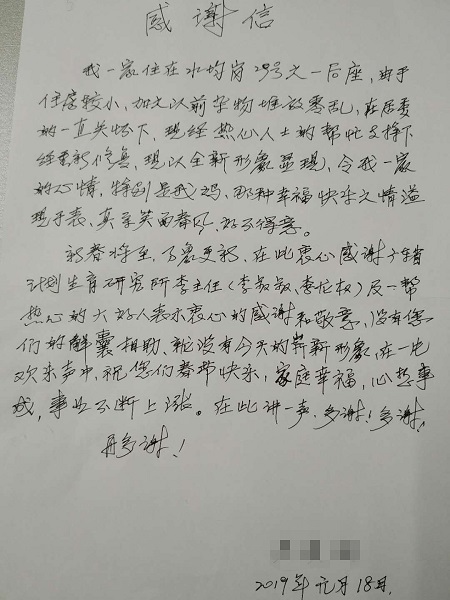 感谢信
我一家住在水均岗29号之一后座,由于
住房较小,加之以前杂物堆放零乱,在居委
的一直关怀下,现经热心人士的帮忙支持下
经重新修复,现以全新形象显现,令我一家
的心情,特别是我妈,那种幸福快乐之情溢
现于表,真享笑面春风,好不得意。
新春将至,万象更新,在此衷心感谢广东省
计划生育研究所李主任(李叔叔、李忙权)及一帮
热心的大好人表示衷心的感谢和敬意,没有您
们的解囊相助,就没有今天的崭新形象,在一片
欢乐声中,祝您们春节快乐,家庭幸福,心想事
成,事业不断上涨。在此讲一声,多谢!多谢!
再多谢!
2019年元月18日.